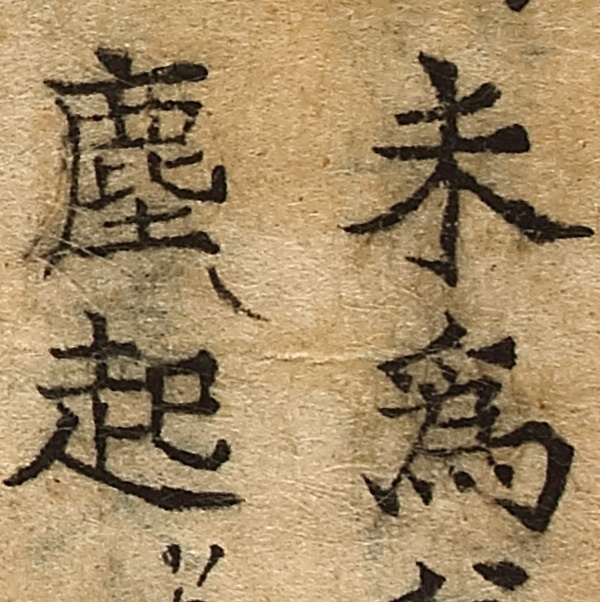 未爲
塵起